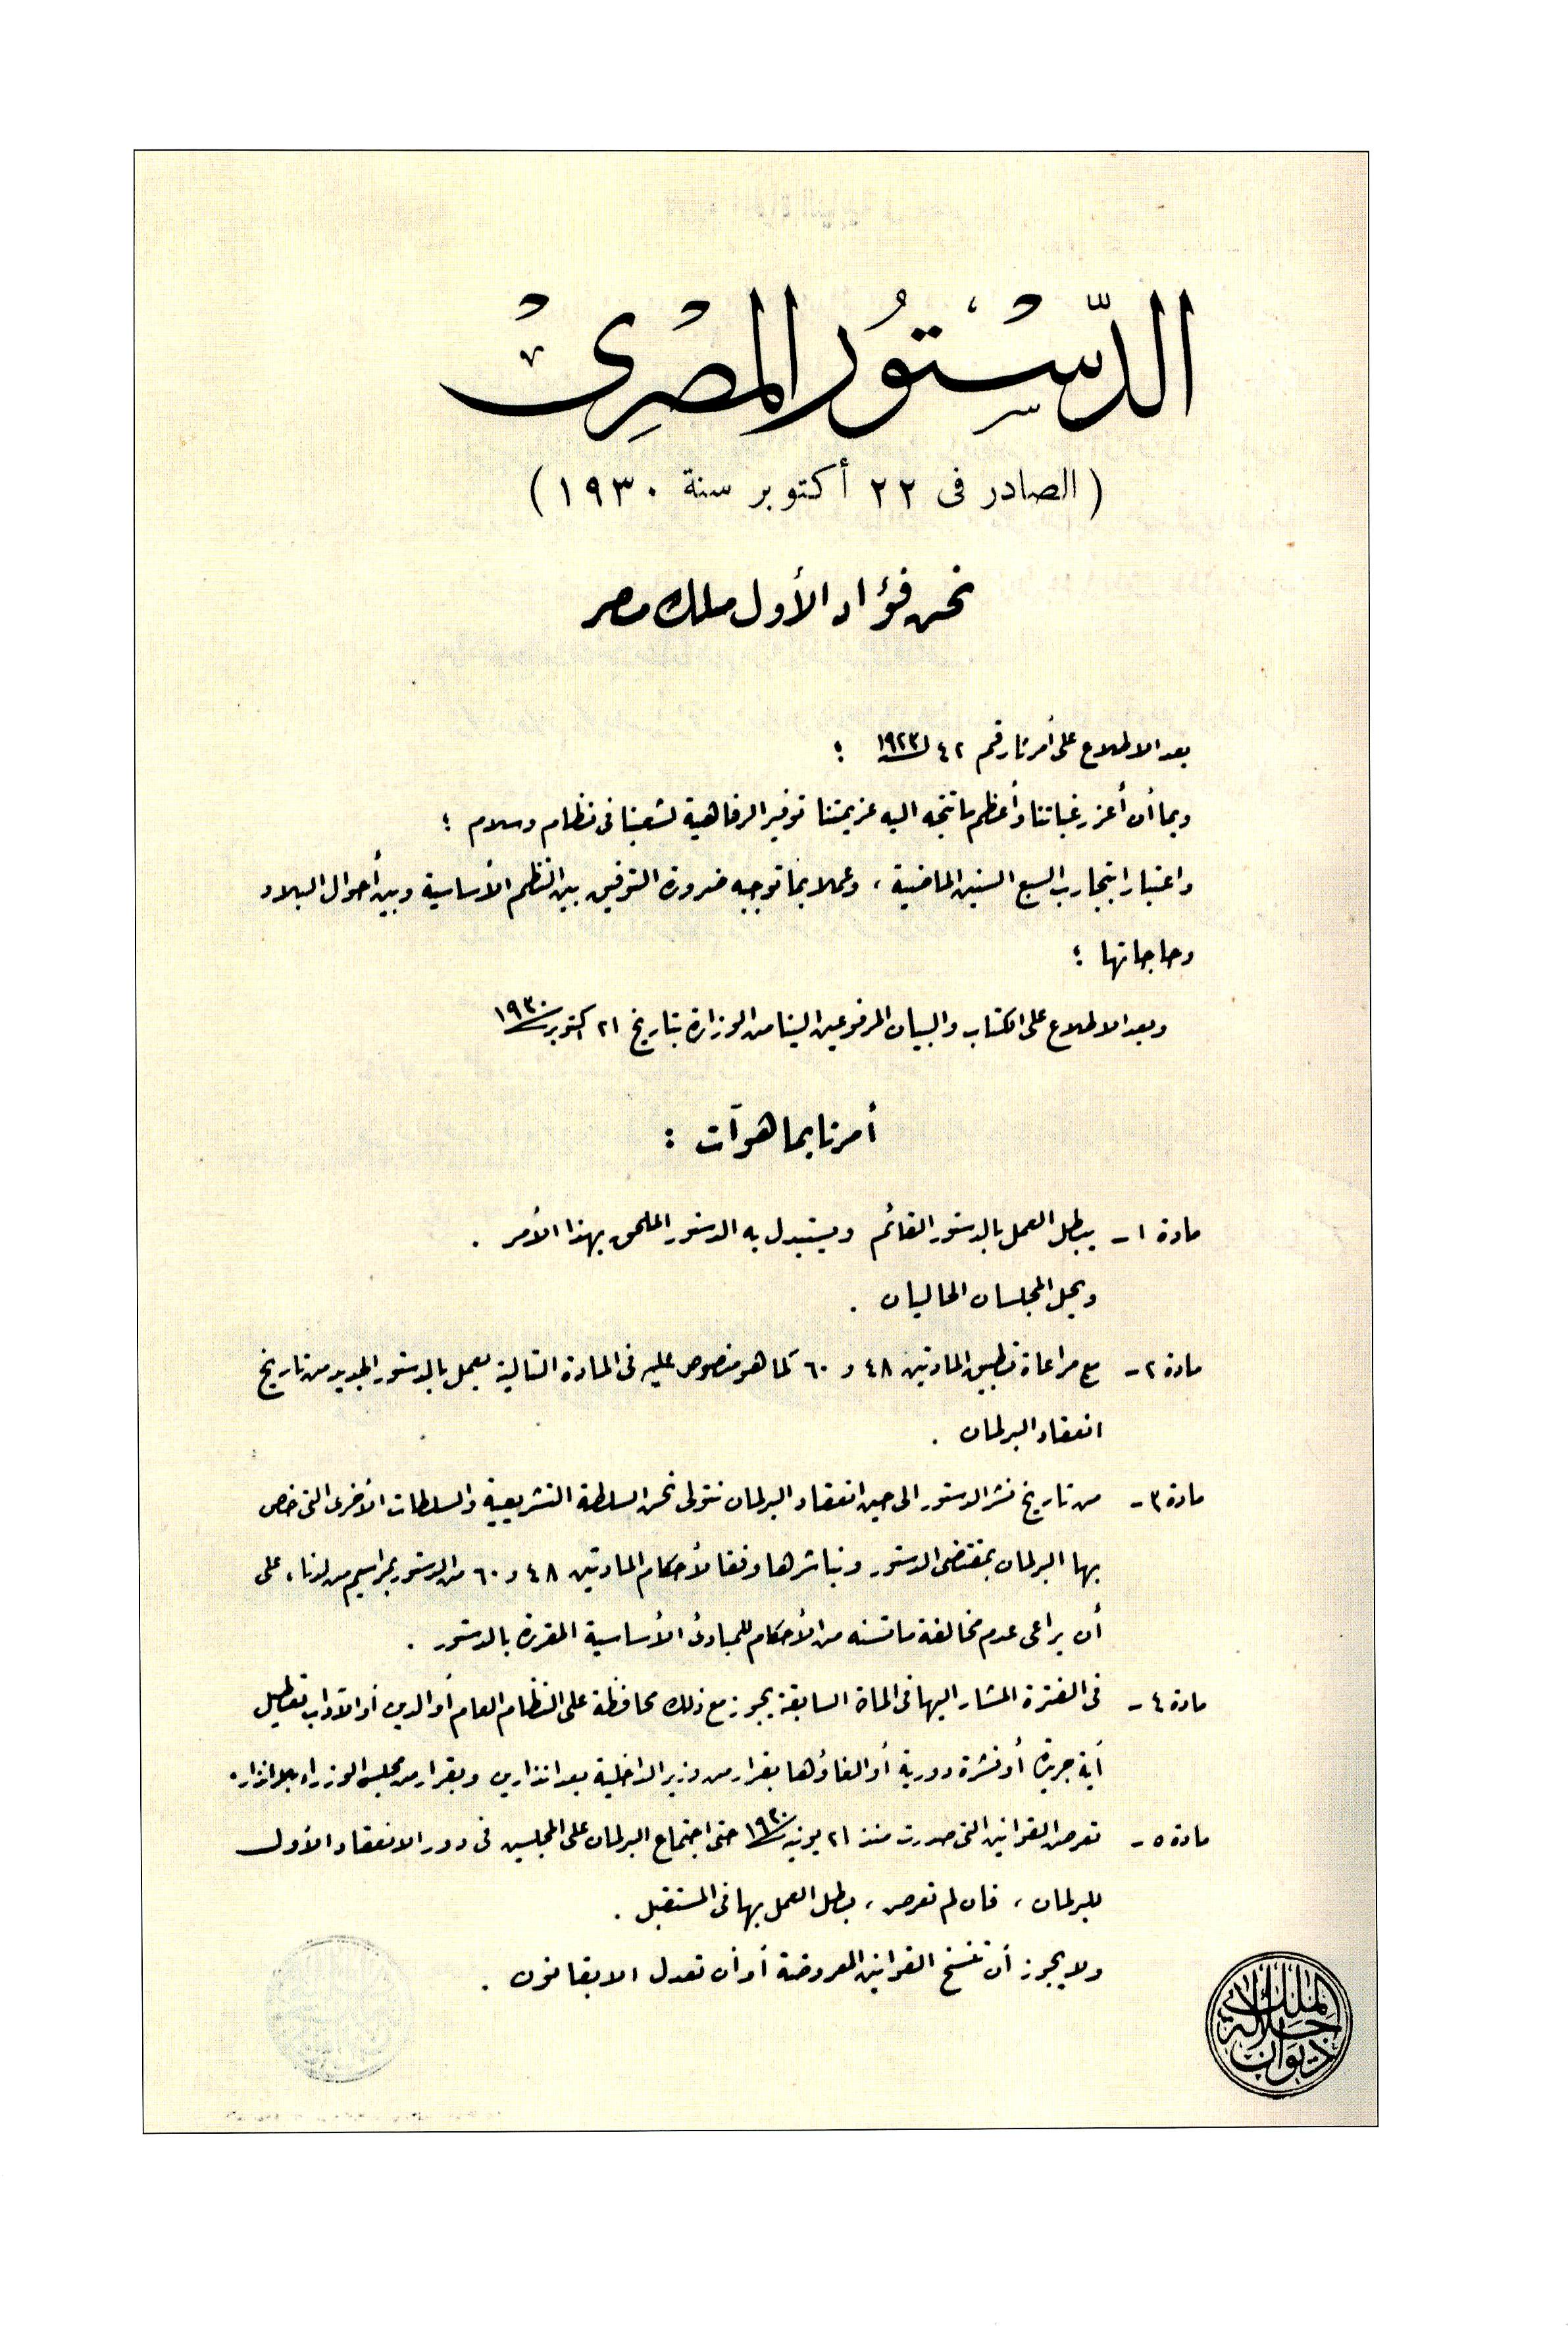 الدستور المصرى
(الصادر فى ٢٢ أكتوبر سنة ١٩٣٠)
نحن فؤاد الأول ملك مصر
بعد الاطلاع على أمرنا رقم ٤٢ لسنة ١٩٢٣ ؛
وبما أن أعز رغباتنا وأعظم ما تتجه اليه عزيمتنا توفير الرفاهية لشعبنا فى نظام وسلام ؛
واعتبارا بتجارب السبع السنين الماضية ، وعملا بما توجبه ضرورة التوفيق بين النظم الأساسية وبين أحوال البلاد
وحاجاتها ؛
وبعد الاطلاع على الكتاب والبيان المرفوعين الينا من الوزارة بتاريخ ٢١ أكتوبر سنة ١٩٣٠
أمرنا بما هو آت :
مادة ١ - يبطل العمل بالدستور القائم ويستبدل به الدستور الملحق بهذا الأمر .
ويحل المجلسان الحاليان .
مادة ٢ - مع مراعاة تطبيق المادتين ٤٨ و ٦٠ كما هو منصوص عليه فى المادة التالية يعمل بالدستور الجديد من تاريخ
انعقاد البرلمان .
مادة ٣ - من تاريخ نشر الدستور الى حين انعقاد البرلمان نتولى نحن السلطة التشريعية والسلطات الأخرى التى خص
بها البرلمان بمقتضى الدستور ونباشرها وفقا لأحكام المادتين ٤٨ و ٦٠ من الدستور بمراسيم من لدنا ، على
أن يراعى عدم مخالفة ما نسنه من الأحكام للمبادئ الأساسية المقررة بالدستور .
مادة ٤ - فى الفترة المشار اليها فى المادة السابقة يجوز مع ذلك محافظة على النظام العام أو الدين أو الآداب تعطيل
أية جريدة أو نشرة دورية أو الغاؤها بقرار من وزير الداخلية بعد انذارين وبقرار من مجلس الوزراء بلا انذار .
مادة ٥ - تعرض القوانين التى صدرت منذ ٢١ يونيه سنة ١٩٣٠ حتى اجتماع البرلمان على المجلسين فى دور الانعقاد الأول
للبرلمان ، فان لم تعرض ، بطل العمل بها فى المستقبل .
ولا يجوز أن تنسخ القوانين المعروضة أو أن تعدل الا بقانون .
ديوان جلالة الملك